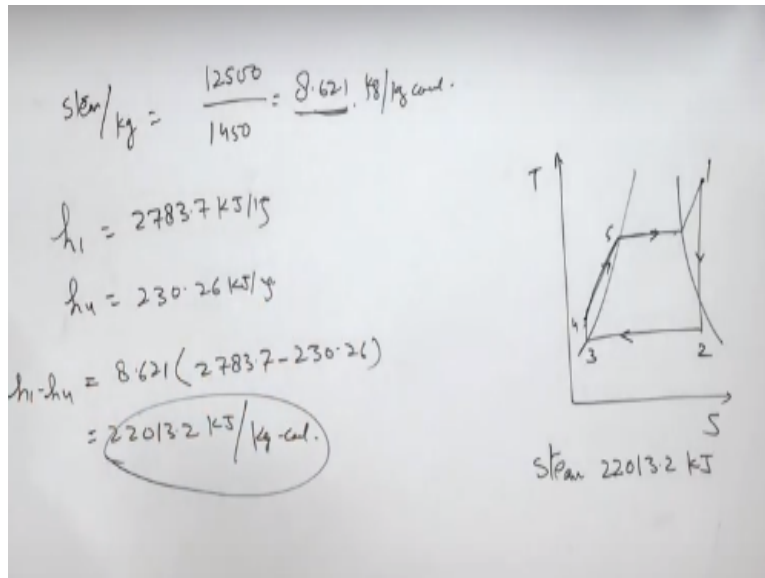 steam/kg = 12500/1450 = 8.621 kg/kg coal.
h1 = 2783.7 KJ/kg
h4 = 230.26 KJ/kg
h1-h4 = 8.621 (2783.7-230.26)
= 22013.2 KJ/kg-coal.
T
1
5
4
3
2
S
Steam 22013.2 KJ